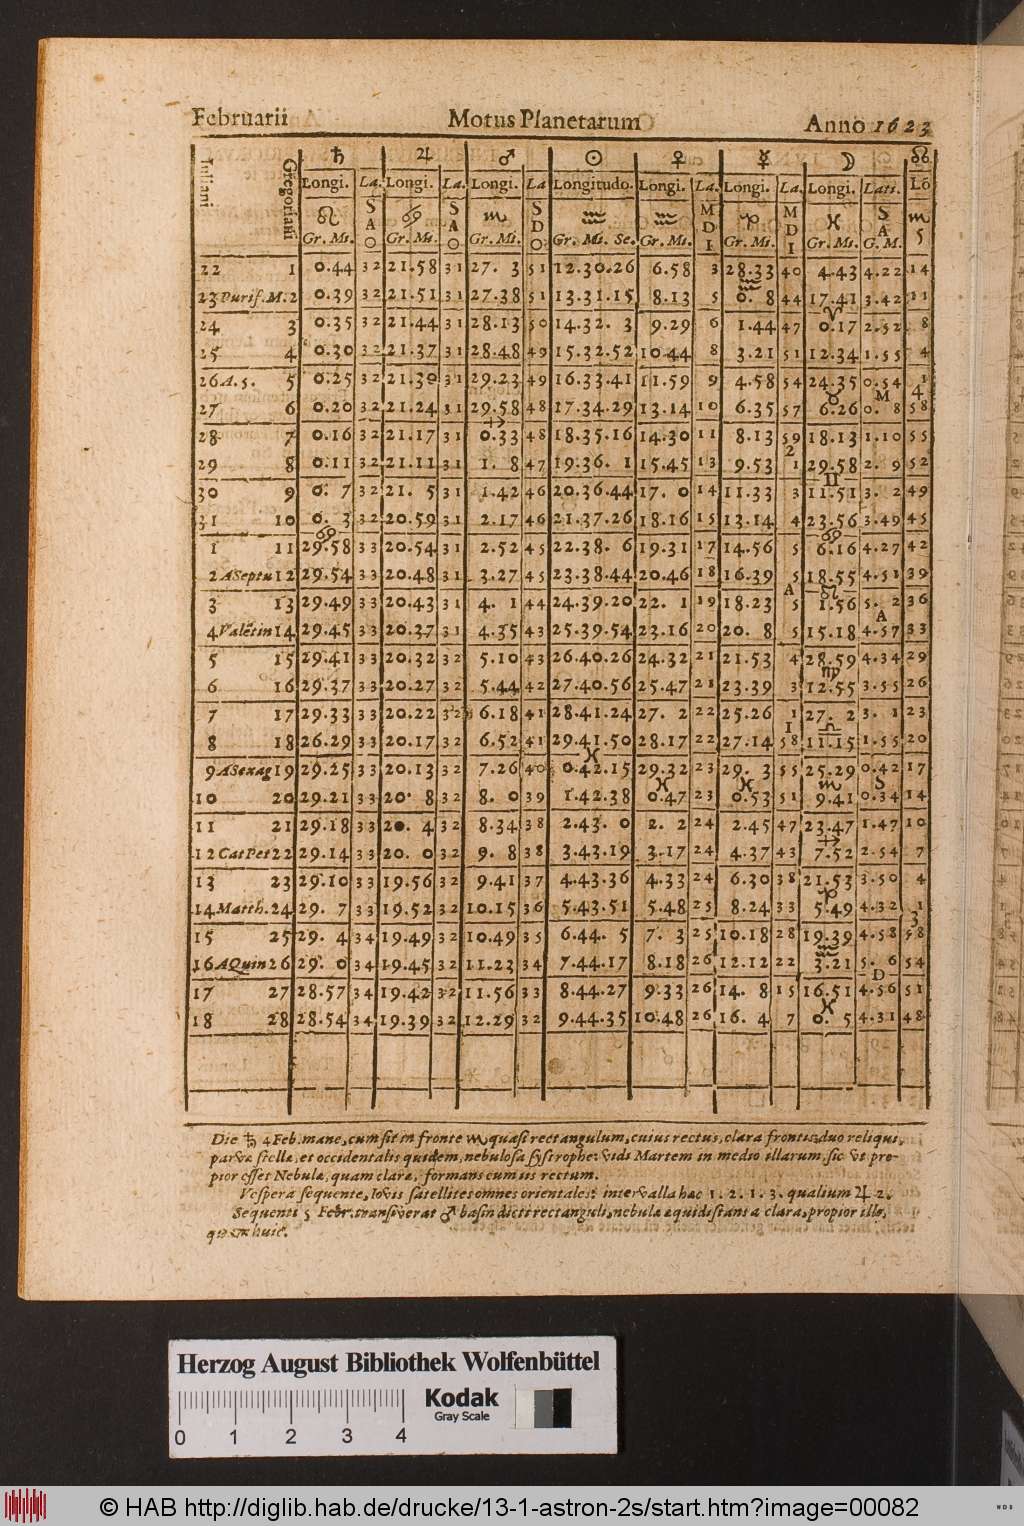 Februarii Motus Planetarum Anno 1623
Iuliani Gregoriani ♄ ♃ ♂ ☉ ♀ ☿ ☽ ☊
Longi. La. Longi. La. Longi. La Longitudo. Longi. La. Longi. La. Longi. Lati. Lō
♌ S A O ♋ S A O ♏ S D O ♒ ♒ M D I ♑ M D I ♓ S A ♏ 5
Gr. Mi. Gr. Mi. Gr. Mi. Gr. Mi. Se. Gr. Mi. Gr. Mi. Gr. Mi. G. M.
22 1 0.44 32 21.58 31 27. 3 51 12.30.26 6.58 3 28.33 40 4.43 4.22 14
♒
23 Purif. M. 2 0.39 32 21.51 31 27.38 51 13.31.15 8.13 5 0. 8 44 17.41 3.42 11
♈
24 3 0.35 32 21.44 31 28.13 50 14.32. 3 9.29 6 1.44 47 0.17 2.52 8
25 4 0.30 32 21.37 31 28.48 49 15.32.52 10.44 8 3.21 51 12.34 1.55 4
26 A. 5. 5 0.25 32 21.30 31 29.23 49 16.33.41 11.59 9 4.58 54 24.35 0.54 1
♉ M 4
27 6 0.20 32 21.24 31 29.58 48 17.34.29 13.14 10 6.35 57 6.26 0. 8 58
♐
28 7 0.16 32 21.17 31 0.33 48 18.35.16 14.30 11 8.13 59 18.13 1.10 55
2
29 8 0.11 32 21.11 31 1. 8 47 19.36. 1 15.45 13 9.53 1 29.58 2. 9 52
♊
30 9 0. 7 32 21. 5 31 1.42 46 20.36.44 17. 0 14 11.33 3 11.51 3. 2 49
31 10 0. 3 32 20.59 31 2.17 46 21.37.26 18.16 15 13.14 4 23.56 3.49 45
♋ ♋
1 11 29.58 33 20.54 31 2.52 45 22.38. 6 19.31 17 14.56 5 6.16 4.27 42
2 ASeptu 12 29.54 33 20.48 31 3.27 45 23.38.44 20.46 18 16.39 5 18.55 4.51 39
A ♌
3 13 29.49 33 20.43 31 4. 1 44 24.39.20 22. 1 19 18.23 5 1.56 5. 2 36
A
4 Valētin 14 29.45 33 20.37 31 4.35 43 25.39.54 23.16 20 20. 8 5 15.18 4.57 33
5 15 29.41 33 20.32 32 5.10 43 26.40.26 24.32 21 21.53 4 28.59 4.34 29
♍
6 16 29.37 33 20.27 32 5.44 42 27.40.56 25.47 21 23.39 3 12.55 3.55 26
7 17 29.33 33 20.22 32 6.18 41 28.41.24 27. 2 22 25.26 1 27. 2 3. 1 23
I ♎
8 18 26.29 33 20.17 32 6.52 41 29.41.50 28.17 22 27.14 58 11.15 1.55 20
♓
9 ASexag 19 29.25 33 20.13 32 7.26 40 0.42.15 29.32 23 29. 3 55 25.29 0.42 17
♓ ♓ ♏ S
10 20 29.21 33 20. 8 32 8. 0 39 1.42.38 0.47 23 0.53 51 9.41 0.34 14
11 21 29.18 33 20. 4 32 8.34 38 2.43. 0 2. 2 24 2.45 47 23.47 1.47 10
♐
12 CatPet 22 29.14 33 20. 0 32 9. 8 38 3.43.19 3.17 24 4.37 43 7.52 2.54 7
13 23 29.10 33 19.56 32 9.41 37 4.43.36 4.33 24 6.30 38 21.53 3.50 4
♑
14 Matth. 24 29. 7 33 19.52 32 10.15 36 5.43.51 5.48 25 8.24 33 5.49 4.32 1
3
15 25 29. 4 34 19.49 32 10.49 35 6.44. 5 7. 3 25 10.18 28 19.39 4.58 58
♒
16 AQuin 26 29. 0 34 19.45 32 11.23 34 7.44.17 8.18 26 12.12 22 3.21 5. 6 54
D
17 27 28.57 34 19.42 32 11.56 33 8.44.27 9.33 26 14. 8 15 16.51 4.56 51
♓
18 28 28.54 34 19.39 32 12.29 32 9.44.35 10.48 26 16. 4 7 0. 5 4.31 48
Die ♄ 4 Feb. mane, cum sit in fronte ♏ quasi rectangulum, cuius rectus, clara frontis: duo reliqui,
parvæ stellæ, et occidentalis quidem, nebulosa systrophe: vidi Martem in medio illarum, sic ut pro-
pior esset Nebulæ, quam claræ, formans cum iis rectum.
Vespera sequente, Iovis satellites omnes orientales: intervalla hæc 1. 2. 1. 3. qualium ♃ 2.
Sequenti 5 Febr. transiverat ♂ basin dicti rectanguli, nebulæ æquidistans a clara, propior illi,
quam huic.
Herzog August Bibliothek Wolfenbüttel
Kodak
Gray Scale
0 1 2 3 4
© HAB http://diglib.hab.de/drucke/13-1-astron-2s/start.htm?image=00082
WDB